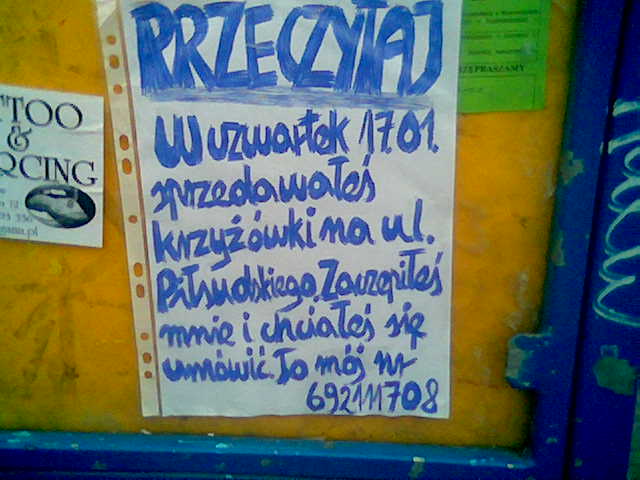 PRZECZYTAJ
W czwartek 17.01.
sprzedawałeś
krzyżówki na ul.
Piłsudskiego. Zaczepiłeś
mnie i chciałeś się
umówić. To mój nr
692111708
TTOO
&
RCING
ZEPRASZAMY